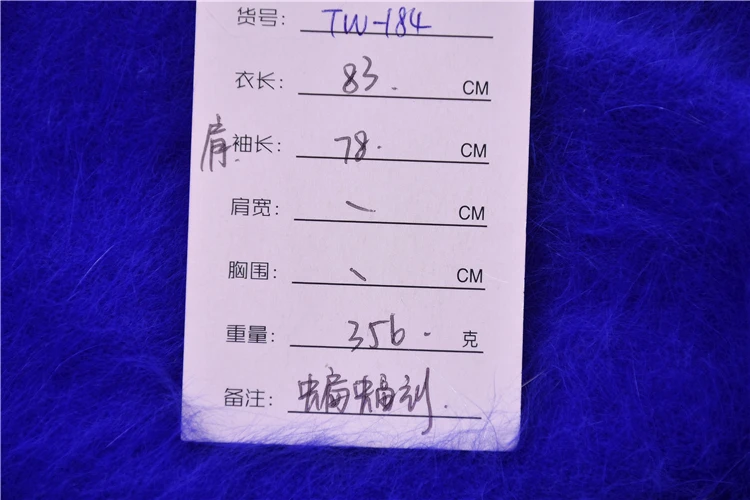 货号: TW-184
衣长: 83. CM
肩袖长: 78. CM
肩宽: \ CM
胸围: \ CM
重量: 356. 克
备注: 蝙蝠